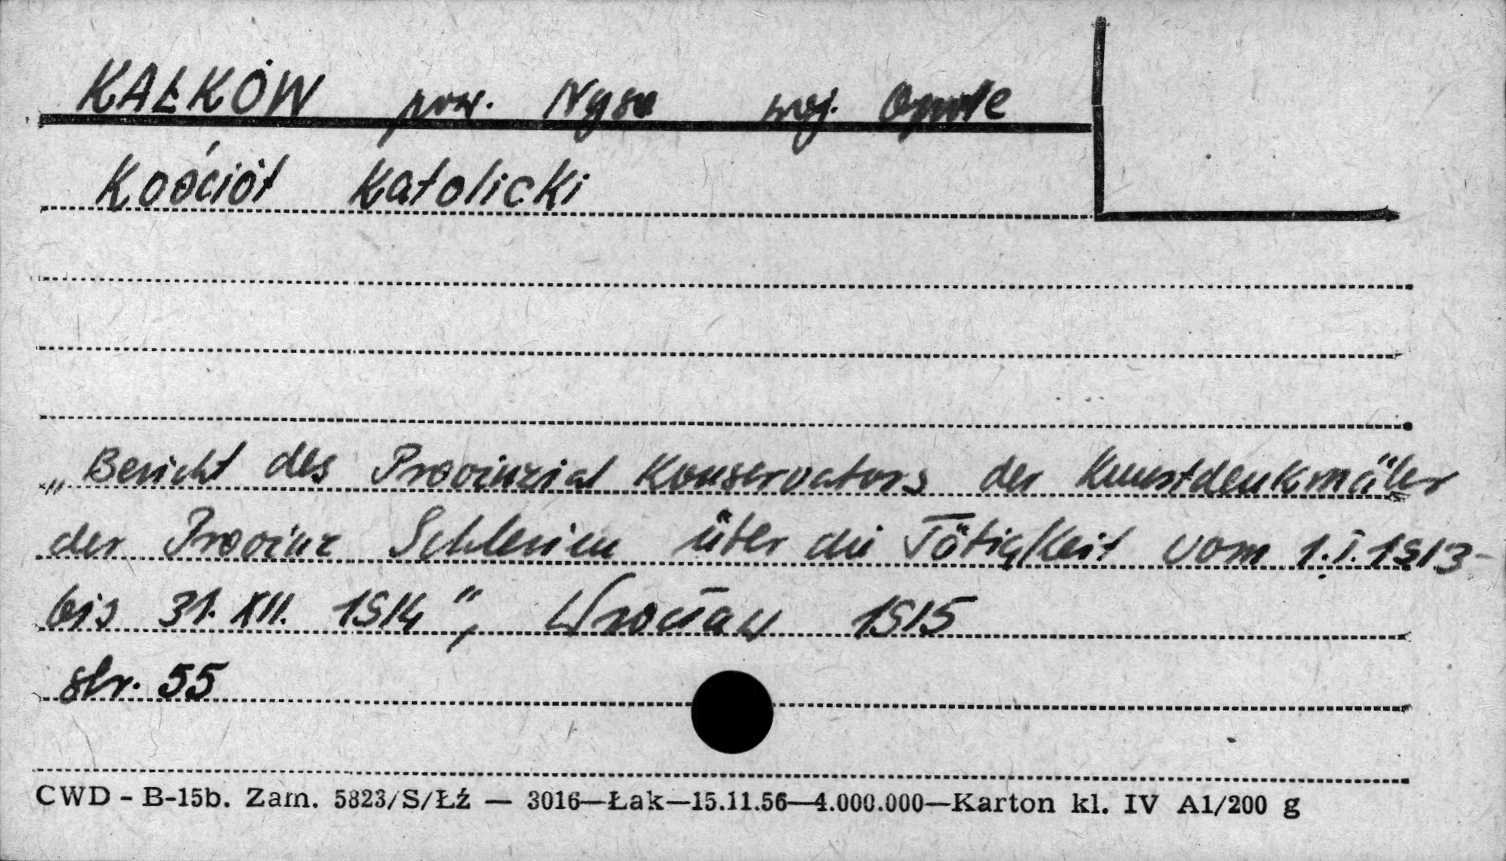 KAŁKÓW pow. Nysa woj. Opole
Kościół Katolicki
„Bericht des Provinzial Konservators der Kunstdenkmäler
der Provinz Schlesien über die Tätigkeit vom 1.I.1913-
bis 31.XII. 1914", Wrocław 1915
str. 55
CWD - B-15b. Zam. 5823/S/Łź — 3016—Łak—15.11.56—4.000.000—Karton kl. IV A1/200 g